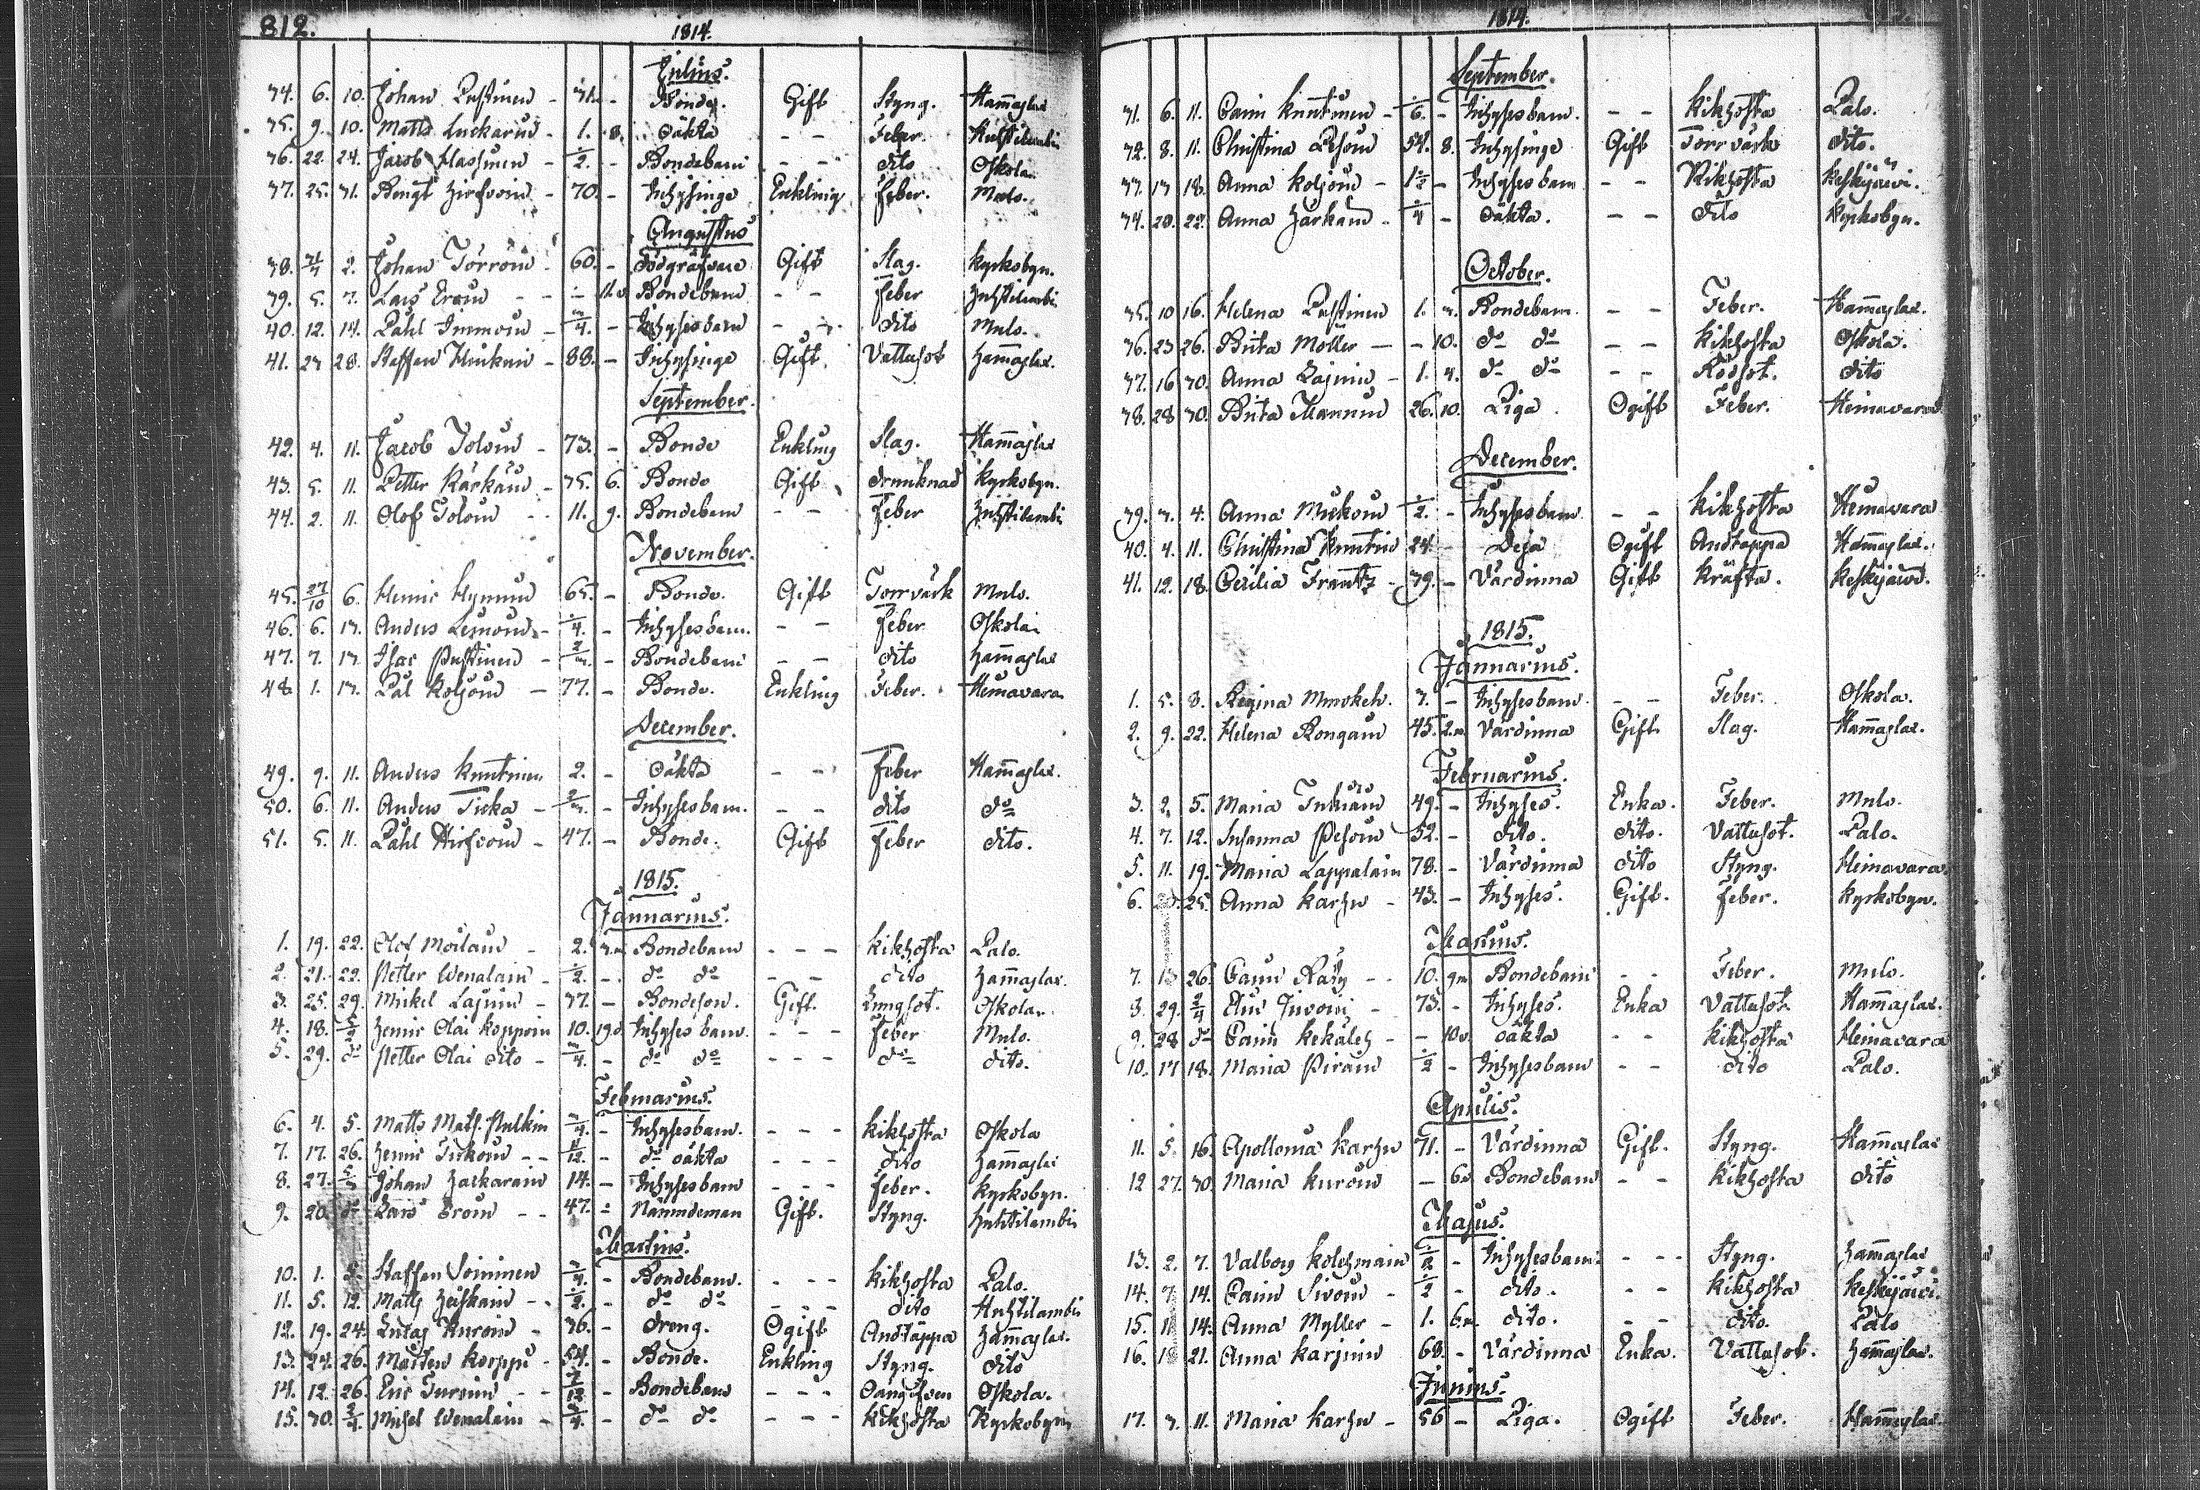 812.
1814.
Julius.
34. 6. 10. Johan Pustinen - 31. - Bonde. Gift Styng. Hammaslax
35. 9. 10. Matts - 1. 8. oäkta - - Feber Huhtilambi
36. 22. 24. Jacob Hassinen - 1/2. - Bondebarn - - dito Oskola
37. 25. 31. Bengt Hirfvoin - 70. - Inhysinge Enkling feber. Mulo.
Augustus
38. 31/7 2. Johan Torroin - 60. - Dödgräfvare Gift Slag. Kyrkobyn.
39. 5. 7. Lars Eroin - - - 11.v. Bondebarn - - feber Huhtilambi
40. 12. 14. Påhl Immoin - 3/4. - Inhysesbarn - - dito Mulo.
41. 27 28. Staffan Hiukain - 88. - Inhysinge Gift. Vattusot Hammaslax.
September.
42. 4. 11. Jacob Toloin - 73. - Bonde Enkling Slag. Hammaslax
43. 5. 11. Petter Kärkäin - 35. 6. Bonde Gift drunknad Kyrkobyn.
44. 2. 11. Olof Toloin - - 11. 9. Bondebarn - - feber Huhtilambi
November.
45. 27/10 6. Henric Hymin 65. - Bonde. Gift Torrvärk Mulo.
46. 6. 13. Anders Lesnoin - 1/4. - Inhysesbarn. - - feber Oskola
47. 7. 13. Isac Pustinen - 2/3. - Bondebarn - - dito Hammaslax
48. 1. 13. Pål Koljoin - 77. - Bonde. Enkling Feber. Heinavara
December.
49. 9. 11. Anders Knuutinen 2. - oäkta - - feber Hammaslax.
50. 6. 11. Anders Ticka - 2/3. - Inhysesbarn. - - dito do
51. 5. 11. Påhl Hirfvoin - 47. - Bonde. Gift feber dito.
1815.
Januarius.
1. 19. 22. Olof Moilain - 2. 3.m. Bondebarn - - - kikhosta Palo.
2. 21. 22. Petter Wenalain - 1/2. - do do - - dito Hammaslax.
3. 25. 29. Mickel Lasinin - 37. - Bondeson. Gift. Lungsot. Oskola.
4. 18. 5/2 Henric Olai Koppoin 10. 19d. Inhyses barn. - - - feber Mulo.
5. 29. do Petter Olai dito - 3/4. - do do - - - do dito.
Februarius.
6. 4. 5. Matts Mats. Pulkin 3/4. - Inhysesbarn. - - - kikhosta Oskola
7. 17. 26. Henric Turkoin - - 11/12. - do oäkta - - - dito Hammaslax
8. 27. 5/3 Johan Zackarain 14. - Inhysesbarn - - - feber. Kyrkobyn.
9. 20. do Lars Eroin - - 47. - Nämndeman Gift. Styng. Huhtilambi
Martius.
10. 1. 5. Staffan Soininen 3/4. - Bondebarn. - - - kikhosta Palo.
11. 5. 12. Matts Heiskain - 1/2. - do do - - - dito Huhtilambi
12. 19. 24. Lucas Kuroin - 36. - dreng. Ogift Andtäppa Hammaslax.
13. 24. 26. Mårten Korppi - 54. - Bonde. Enkling Styng. dito
14. 12. 26. Eric Tursuin - - 7/12 - Bondebarn - - - Oangifven Oskola.
15. 30. 2/4 Michel Wenalain - 3/4. - do do - - - kikhosta Kyrkobyn
1814.
September.
31. 6. 11. Carin Knutinen - 1/6. - Inhysesbarn. - - kikhosta Palo.
32. 8. 11. Christina Pesoin 54. 8. Inhysinge Gift Torrvärk dito.
33. 13 18. Anna Koljoin - 1 1/2 - Inhyses barn - - Kikhosta Keskijärvi.
34. 20. 22. Anna Härkäin - 1/4 - oäkta. - - dito Kyrkobyn.
October.
35. 10 16. Helena Pustinen 1. 3. Bondebarn. - - Feber. Hammaslax.
36. 23 26. Brita Möller - - 10. do do - - kikhosta Oskola.
37. 16 30. Anna Lajinin - 1. 4. do do - - Rödsot. dito
38. 28 30. Brita Mannin 26. 10. Piga. Ogift Feber. Heinavara
December.
39. 3. 4. Anna Muikoin 1/2. - Inhysesbarn - - kikhosta Heinavara
40. 4. 11. Christina Knuutin 24. - Deja Ogift Andtäppa Hammaslax.
41. 12. 18. Cecilia Frantz - 39. - Värdinna Gift kräfta. Keskijärvi.
1815.
Januarius.
1. 5. 8. Regina Muskeh. 7. - Inhysesbarn. - - Feber. Oskola.
2. 9. 22. Helena Rongain 45. 2.m. Värdinna Gift. Slag. Hammaslax.
Februarius.
3. 2. 5. Maria Tukiain 49. - Inhyses. Enka. Feber. Mulo.
4. 7. 12. Susanna Pesoin 52. - dito. dito. Vattusot. Palo.
5. 11. 19. Maria Lappalain 78. - Värdinna dito Styng. Heinavara.
6. 25. Anna Karhu - 43. - Inhyses. Gift. feber. Kyrkobyn.
Martius.
7. 26. Carin Räty - - 10. 9m Bondebarn - - Feber. Mulo.
8. 29. 2/4 Elin Juvoin - 73. - Inhyses. Enka Vattusot. Hammaslax.
9. 28 do Carin Kekäleh - - 10v. oäkta - - kikhosta Heinavara
10. 17 18. Maria Pirain 1/2 - Inhysesbarn - - dito Palo.
Aprilis.
11. 5. 16. Apollonia Karhu 71. - Värdinna Gift. Styng. Hammaslax
12 27. 30. Maria Kuroin - 6v. Bondebarn - - kikhosta dito
Majus.
13. 2. 7. Valborg Kolehmain 1/2 - Inhysesbarn. - - - Styng. Hammaslax
14. 7 14. Carin Sivoin - 1/2 - dito. - - kikhosta Keskijärvi.
15. 14. Anna Myller - 1. 6m. dito. - - dito. Palo
16. 21. Anna Karjinin 68. - Värdinna Enka. Vattusot. Hammaslax.
Junius.
17. 3. 11. Maria Karhu - 56 - Piga. Ogift Feber. Hammaslax.